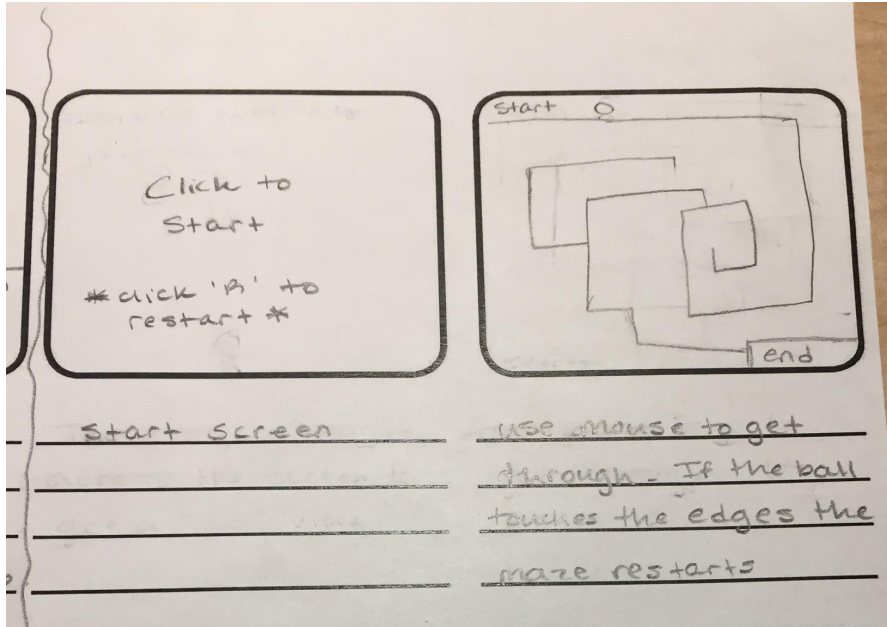 Click to
Start
*click 'R' to
restart*
Start screen
Start
end
use mouse to get
through. If the ball
touches the edges the
maze restarts